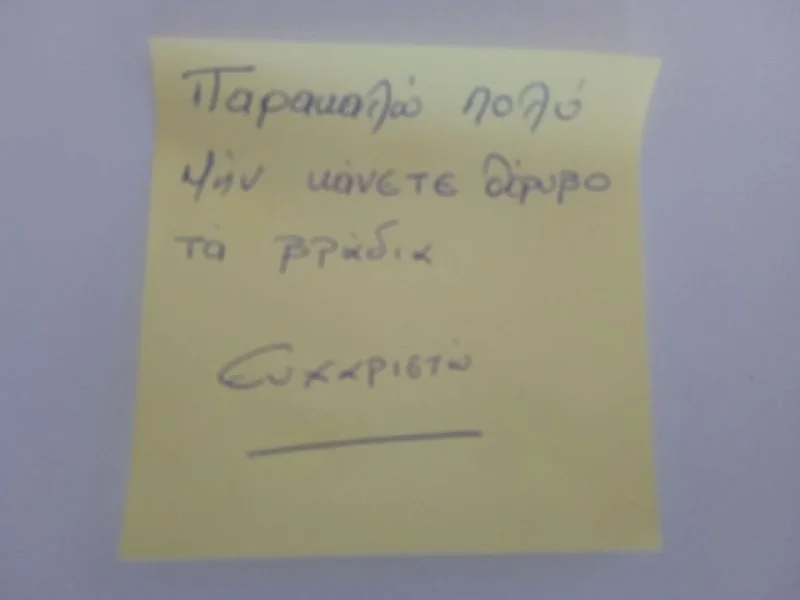 Παρακαλώ πολύ
Μήν κάνετε θόρυβο
τά βράδια
Ευχαριστώ